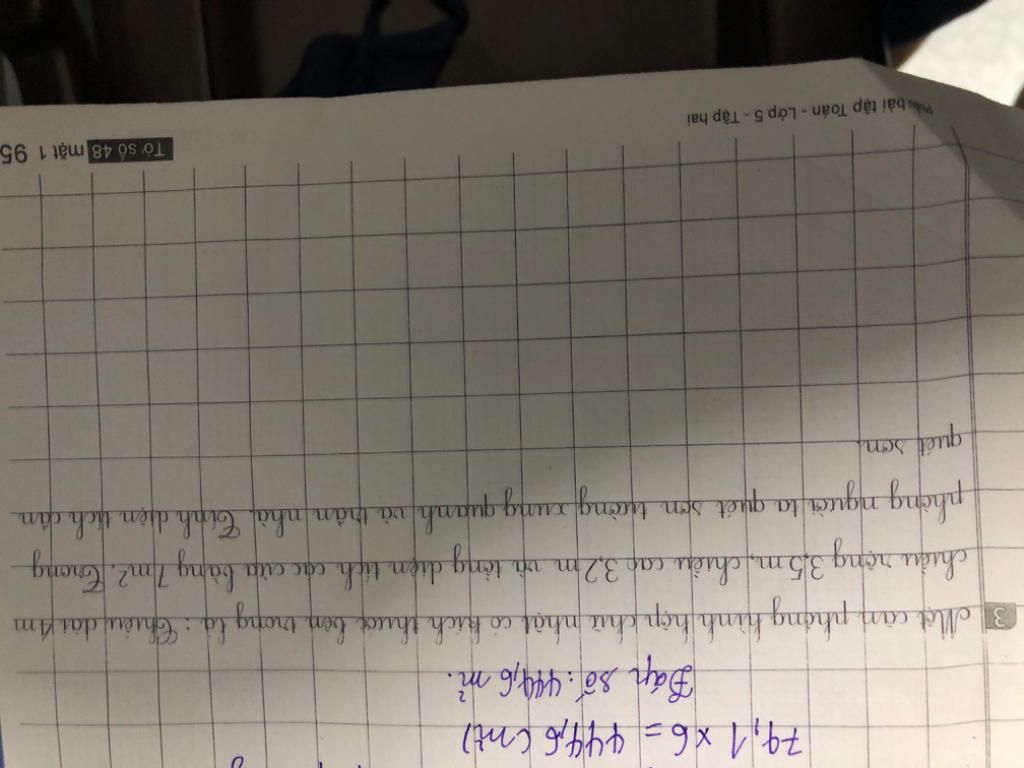 74,1 × 6 = 444,6 (m²)
Đáp số: 444,6 m².
3 Một căn phòng hình hộp chữ nhật có kích thước bên trong là: Chiều dài 4m
chiều rộng 3,5m, chiều cao 3,2m và tổng diện tích các cửa bằng 7m². Trong
phòng người ta quét sơn tường xung quanh và trần nhà. Tính diện tích cần
quét sơn.
Phiếu bài tập Toán - Lớp 5 - Tập hai
Tờ số 48 mặt 1 95